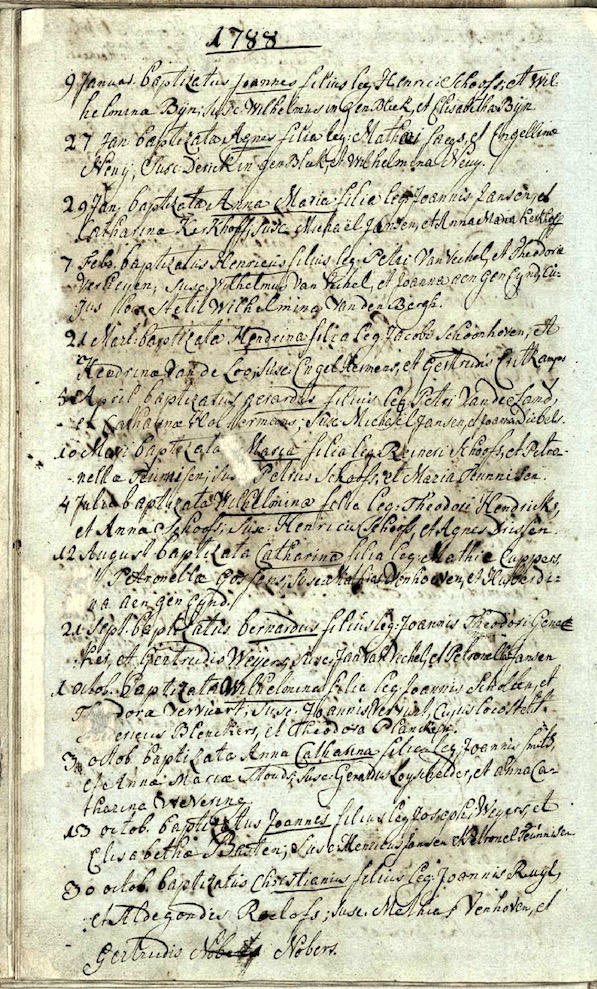 1788
9 Januar. baptizatus Joannes filius leg. Henrici Schoofs, et Wil-
helmina Bijn; susc. Wilhelmus in gen Bleek, et Elisabetha Bijn
27 Jan baptizata Agnes filia leg: Mathei et Engellina
Neuij, Susc. Derick in gen Bleek, et Wilhelmina Neuij.
29 Jan. baptizata Anna Maria filia leg Joannis Jansen, et
Catharina Kerkhoff, susc. Michael Jansen, et Anna Maria Kerkhoff
7 Febr. baptizatus Henricus filius leg. Petri Van Vechel, et Theodora
Verheijen; susc. Wilhelmus Van Vechel, et Joanna aen gen Eijnd, cu-
jus loco stetit Wilhelmina Van den Bergh.
21 Mart. baptizata Hendrina filia leg. Jacobi Schoonhoven, et
Hendrina van de Loo; susc. Engel Hermens, et Gertrudis
5 April baptizatus gerardus filius leg. Petri Van de Sand,
et Catharina Holthermans; susc. Michael Jansen, et Joanna Diebels.
10 Maii baptizata Maria filia leg. Reineri Schoofs, et Petro-
nella Teunissen; susc Petrus Schoofs, et Maria Teunnissen.
4 Julii baptizata Wilhelmina filia leg. Theodori Hendricks,
et Anna Schoofs; susc. Henricus Schoofs, et Agnes Drissen.
12 August baptizata Catharina filia leg. Mathiæ Cuppers,
Petronella susc. Mathias Venhoeven, et Huberdi-
na aen gen Eijnd.
21 Sept. baptizatus bernardus filius leg. Joannis Theodori
et Gertrudis Weijers, susc. Jan van Vechel, et Petronella Jansen
1 octob. baptizata Wilhelmina filia leg. Joannis Scholten, et
Theodora Vervoert, susc. Joannis cujus loco stetit
Blenckers, et Theodora Plancken.
3 octob baptizata Anna Catharina filia leg. Joannis Smits,
et Anna Maria susc. Gerardus et anna Ca-
tharina Wevering.
13 octob. baptizatus Joannes filius leg. Josephi Weijers, et
Elisabetha susc. Henricus Jansen et Petronel Teunissen
30 octob. baptizatus Christianus filius leg. Joannis Ruijl,
et Aldegondis Roelofs; susc. Mathias Venhoven, et
Gertrudis Nobers.